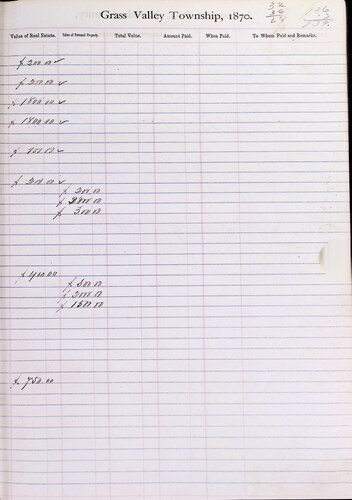 Grass Valley Township, 1870.
32
36
64
Value of Real Estate. Value of Personal Property. Total Value. Amount Paid. When Paid. To Whom Paid and Remarks.
$ 200.00 ✓
$ 200.00 ✓
$ 1800.00 ✓
$ 1800.00 ✓
$ 200.00 ✓
$ 300.00
$ 300.00
$ 400.00
$ 500.00
$ 300.00
$ 1500.00
$ 750.00